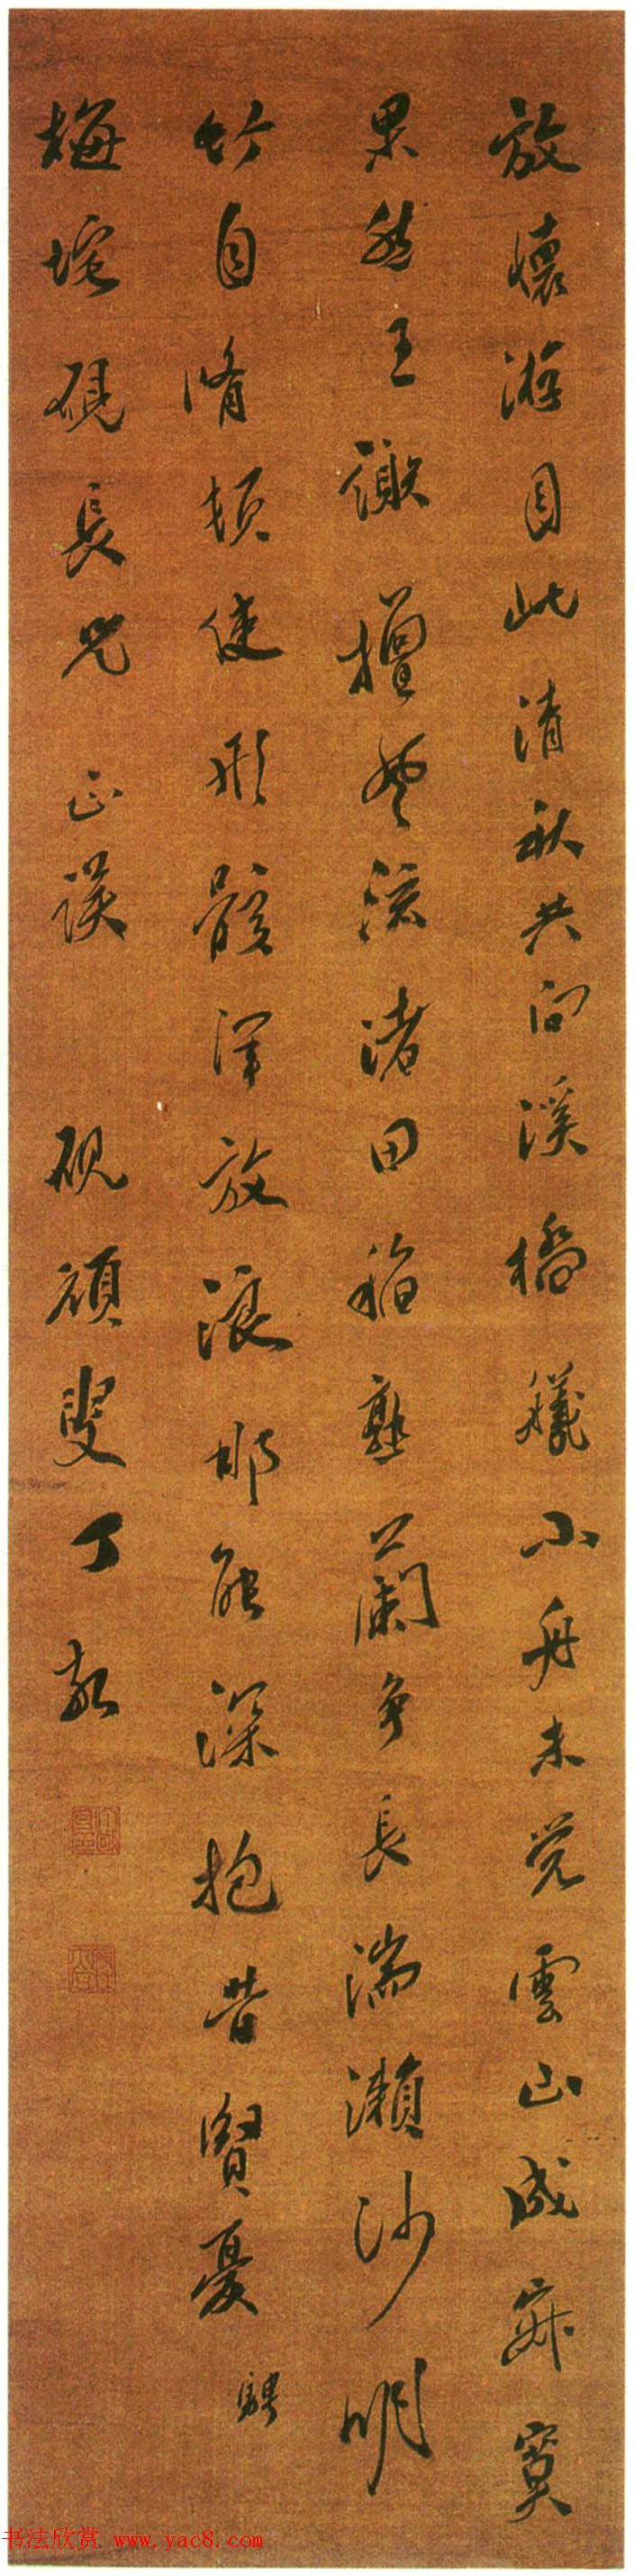 放懷游目此清秋共向溪橋艤小舟未覺雲山成寂寞
果然王謝擅風流渚田稻熟公蘭争長湍瀨沙明
竹自脩頓使形骸渾放浪那能深抱昔賢憂
梅垞硯長兄 正謬 硯頑叟丁敬
书法欣赏 www.yac8.com